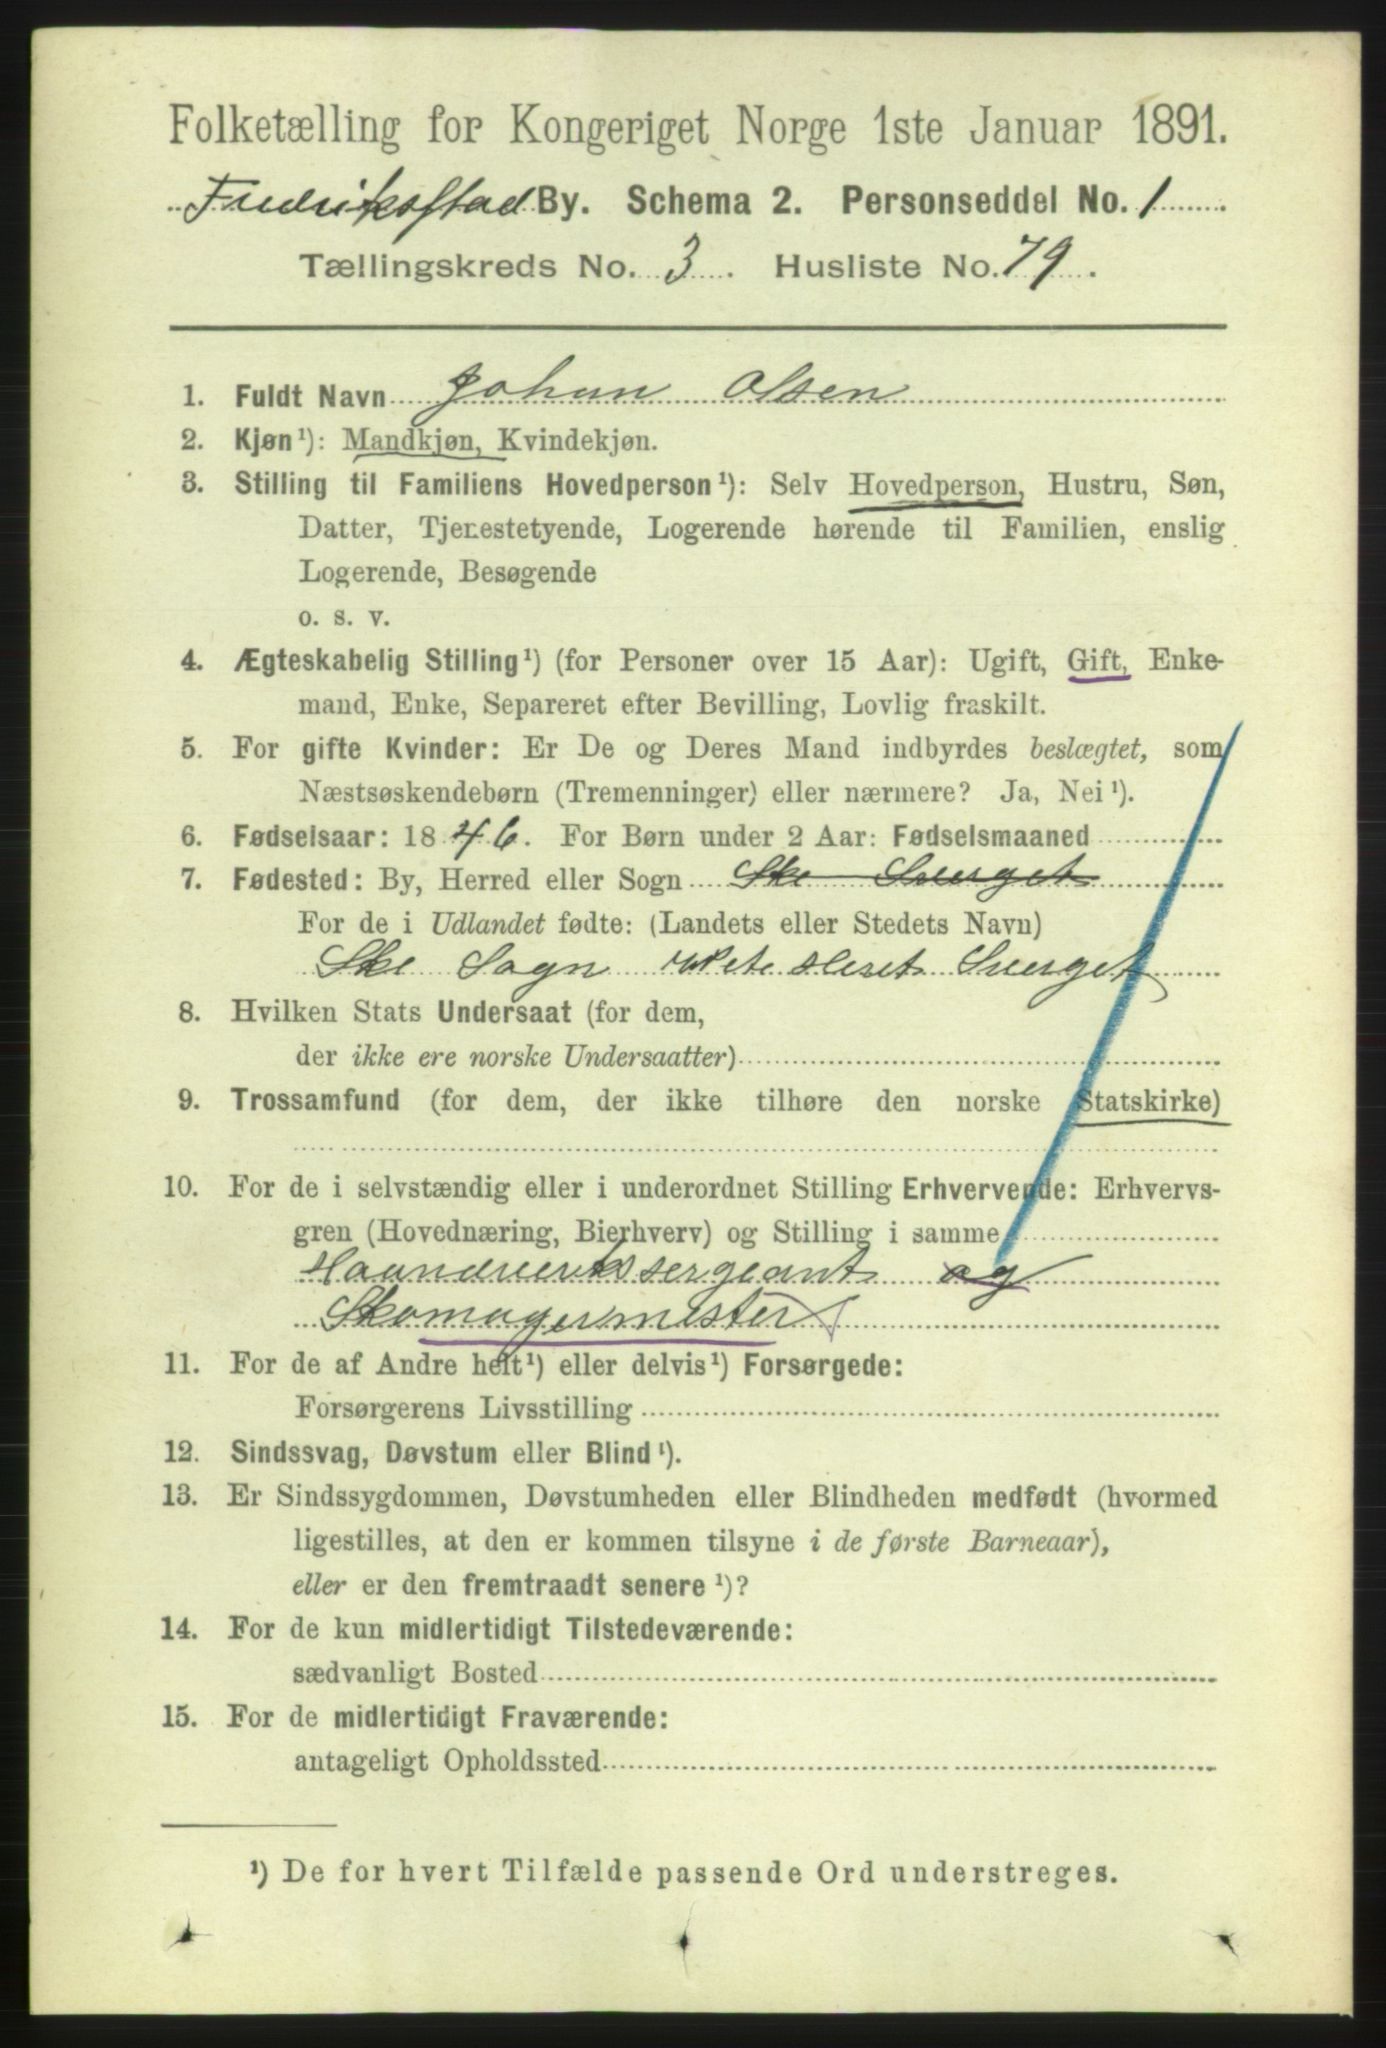 Folketælling for Kongeriget Norge 1ste Januar 1891.
Fredriksstad By. Schema 2. Personseddel No. 1
Tællingskreds No. 3. Husliste No. 79.
1. Fuldt Navn Johan Olsen
2. Kjøn¹): Mandkjøn, Kvindekjøn.
3. Stilling til Familiens Hovedperson¹): Selv Hovedperson, Hustru, Søn,
Datter, Tjenestetyende, Logerende hørende til Familien, enslig
Logerende, Besøgende
o. s. v.
4. Ægteskabelig Stilling¹) (for Personer over 15 Aar): Ugift, Gift, Enke-
mand, Enke, Separeret efter Bevilling, Lovlig fraskilt.
5. For gifte Kvinder: Er De og Deres Mand indbyrdes beslægtet, som
Næstsøskendebørn (Tremenninger) eller nærmere? Ja, Nei¹).
6. Fødselsaar: 1846. For Børn under 2 Aar: Fødselsmaaned
7. Fødested: By, Herred eller Sogn Ske Sverget
For de i Udlandet fødte: (Landets eller Stedets Navn)
Ske Sogn Sverget
8. Hvilken Stats Undersaat (for dem,
der ikke ere norske Undersaatter)
9. Trossamfund (for dem, der ikke tilhøre den norske Statskirke)
10. For de i selvstændig eller i underordnet Stilling Erhvervende: Erhvervs-
gren (Hovednæring, Bierhverv) og Stilling i samme
Haandverkssergeant og
Skomagermester
11. For de af Andre helt¹) eller delvis¹) Forsørgede:
Forsørgerens Livsstilling
12. Sindssvag, Døvstum eller Blind¹).
13. Er Sindssygdommen, Døvstumheden eller Blindheden medfødt (hvormed
ligestilles, at den er kommen tilsyne i de første Barneaar),
eller er den fremtraadt senere¹)?
14. For de kun midlertidigt Tilstedeværende:
sædvanligt Bosted
15. For de midlertidigt Fraværende:
antageligt Opholdssted
¹) De for hvert Tilfælde passende Ord understreges.